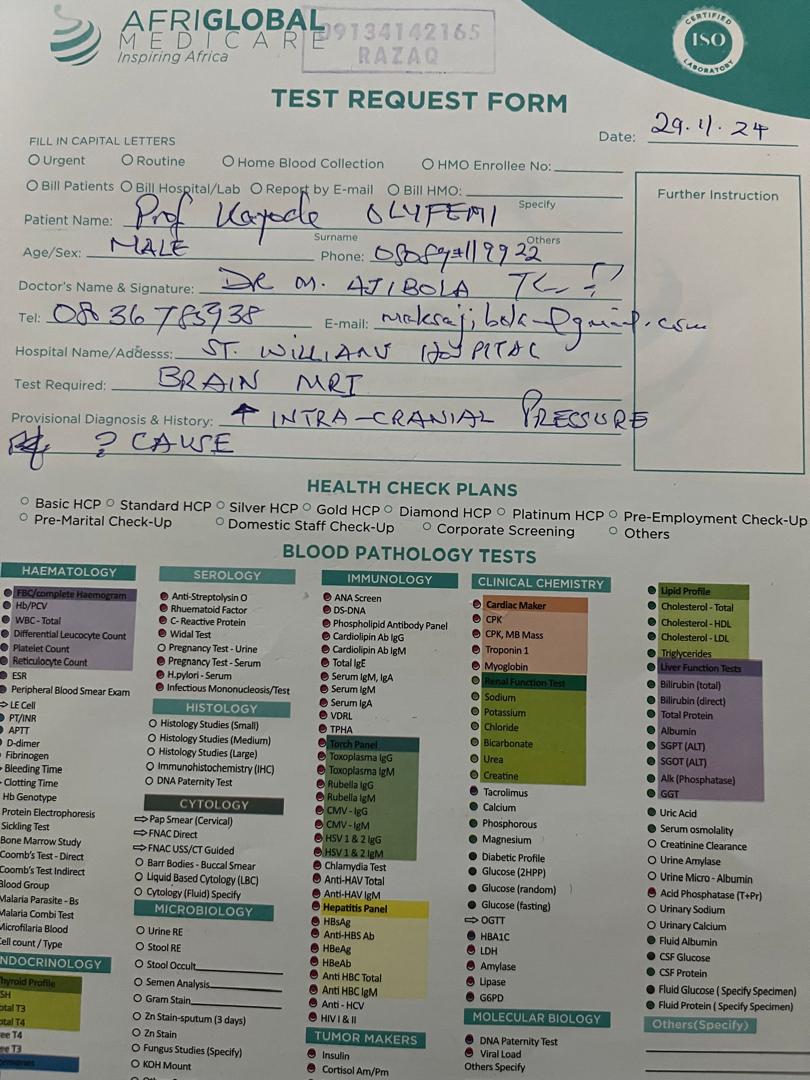 AFRIGLOBAL
MEDICARE
Inspiring Africa
09134142165
RAZAQ
CERTIFIED
ISO
LABORATORY
TEST REQUEST FORM
Date: 29.11.24
FILL IN CAPITAL LETTERS
Urgent Routine Home Blood Collection HMO Enrollee No:
Bill Patients Bill Hospital/Lab Report by E-mail Bill HMO:
Specify
Further Instruction
Patient Name: Prof Kayode OLUFEMI
Surname Others
Age/Sex: MALE Phone:
Doctor's Name & Signature: DR M. AJIBOLA
Tel: 08036785938 E-mail:
Hospital Name/Addesss: ST. WILLIAMS HOSPITAL
Test Required: BRAIN MRI
Provisional Diagnosis & History: ↑ INTRA-CRANIAL PRESSURE
? CAUSE
HEALTH CHECK PLANS
Basic HCP Standard HCP Silver HCP Gold HCP Diamond HCP Platinum HCP Pre-Employment Check-Up
Pre-Marital Check-Up Domestic Staff Check-Up Corporate Screening Others
BLOOD PATHOLOGY TESTS
HAEMATOLOGY
FBC/complete Haemogram
Hb/PCV
WBC - Total
Differential Leucocyte Count
Platelet Count
Reticulocyte Count
ESR
Peripheral Blood Smear Exam
LE Cell
PT/INR
APTT
D-dimer
Fibrinogen
Bleeding Time
Clotting Time
Hb Genotype
Protein Electrophoresis
Sickling Test
Bone Marrow Study
Coomb's Test - Direct
Coomb's Test Indirect
Blood Group
Malaria Parasite - Bs
Malaria Combi Test
Microfilaria Blood
Cell count / Type
NDOCRINOLOGY
hyroid Profile
SH
otal T3
otal T4
ee T4
ee T3
SEROLOGY
Anti-Streptolysin O
Rhuematoid Factor
C- Reactive Protein
Widal Test
Pregnancy Test - Urine
Pregnancy Test - Serum
H.pylori - Serum
Infectious Mononucleosis/Test
HISTOLOGY
Histology Studies (Small)
Histology Studies (Medium)
Histology Studies (Large)
Immunohistochemistry (IHC)
DNA Paternity Test
CYTOLOGY
Pap Smear (Cervical)
FNAC Direct
FNAC USS/CT Guided
Barr Bodies - Buccal Smear
Liquid Based Cytology (LBC)
Cytology (Fluid) Specify
MICROBIOLOGY
Urine RE
Stool RE
Stool Occult
Semen Analysis
Gram Stain
Zn Stain-sputum (3 days)
Zn Stain
Fungus Studies (Specify)
KOH Mount
IMMUNOLOGY
ANA Screen
DS-DNA
Phospholipid Antibody Panel
Cardiolipin Ab IgG
Cardiolipin Ab IgM
Total IgE
Serum IgM, IgA
Serum IgM
Serum IgA
VDRL
TPHA
Torch Panel
Toxoplasma IgG
Toxoplasma IgM
Rubella IgG
Rubella IgM
CMV - IgG
CMV - IgM
HSV 1 & 2 IgG
HSV 1 & 2 IgM
Chlamydia Test
Anti-HAV Total
Anti-HAV IgM
Hepatitis Panel
HBsAg
Anti-HBS Ab
HBeAg
HBeAb
Anti HBC Total
Anti HBC IgM
Anti - HCV
HIV I & II
TUMOR MAKERS
Insulin
Cortisol Am/Pm
CLINICAL CHEMISTRY
Cardiac Maker
CPK
CPK, MB Mass
Troponin 1
Myoglobin
Renal Function Test
Sodium
Potassium
Chloride
Bicarbonate
Urea
Creatine
Tacrolimus
Calcium
Phosphorous
Magnesium
Diabetic Profile
Glucose (2HPP)
Glucose (random)
Glucose (fasting)
OGTT
HBA1C
LDH
Amylase
Lipase
G6PD
MOLECULAR BIOLOGY
DNA Paternity Test
Viral Load
Others Specify
Lipid Profile
Cholesterol - Total
Cholesterol - HDL
Cholesterol - LDL
Triglycerides
Liver Function Tests
Bilirubin (total)
Bilirubin (direct)
Total Protein
Albumin
SGPT (ALT)
SGOT (ALT)
Alk (Phosphatase)
GGT
Uric Acid
Serum osmolality
Creatinine Clearance
Urine Amylase
Urine Micro - Albumin
Acid Phosphatase (T+Pr)
Urinary Sodium
Urinary Calcium
Fluid Albumin
CSF Glucose
CSF Protein
Fluid Glucose ( Specify Specimen)
Fluid Protein ( Specify Specimen)
Others(Specify)